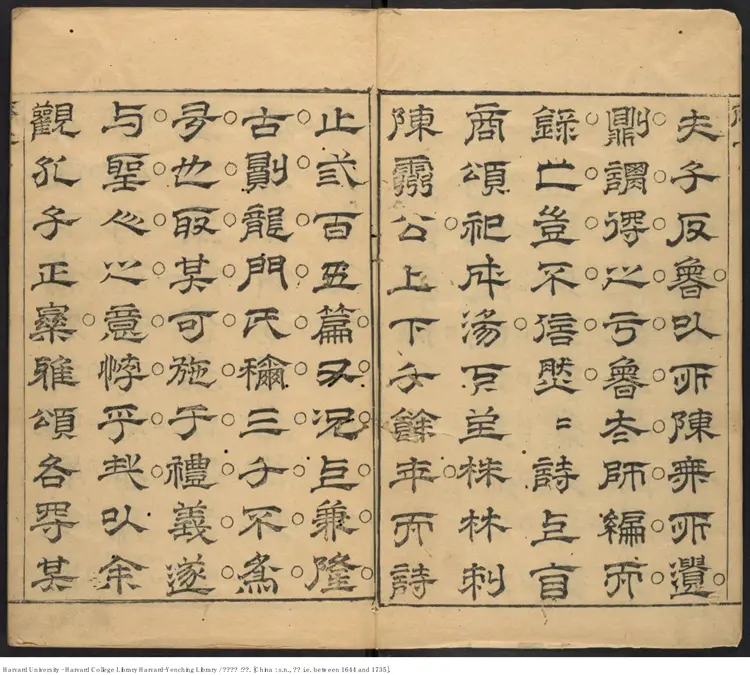 夫子反魯以所陳乘所遺
則謂得之于魯太師編而
錄之豈不信然〻詩亘自
商頌祀成湯下至株林刺
陳靈公上下千餘年而詩
止弎百五篇又况亘兼隆
古則龍門氏稱三千不為
多也取其可施于禮義遂
与聖心之意悖乎哉以余
觀孔子正樂雅頌各得其
Harvard University - Harvard College Library Harvard-Yenching Library / ???? ??. [China : s.n., ?? i.e. between 1644 and 1735].